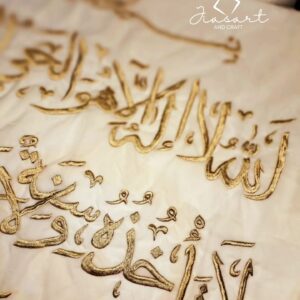 Jasart
AND CRAFT
الله لا إله إلا هو الحي
لا تأخذه سنة و